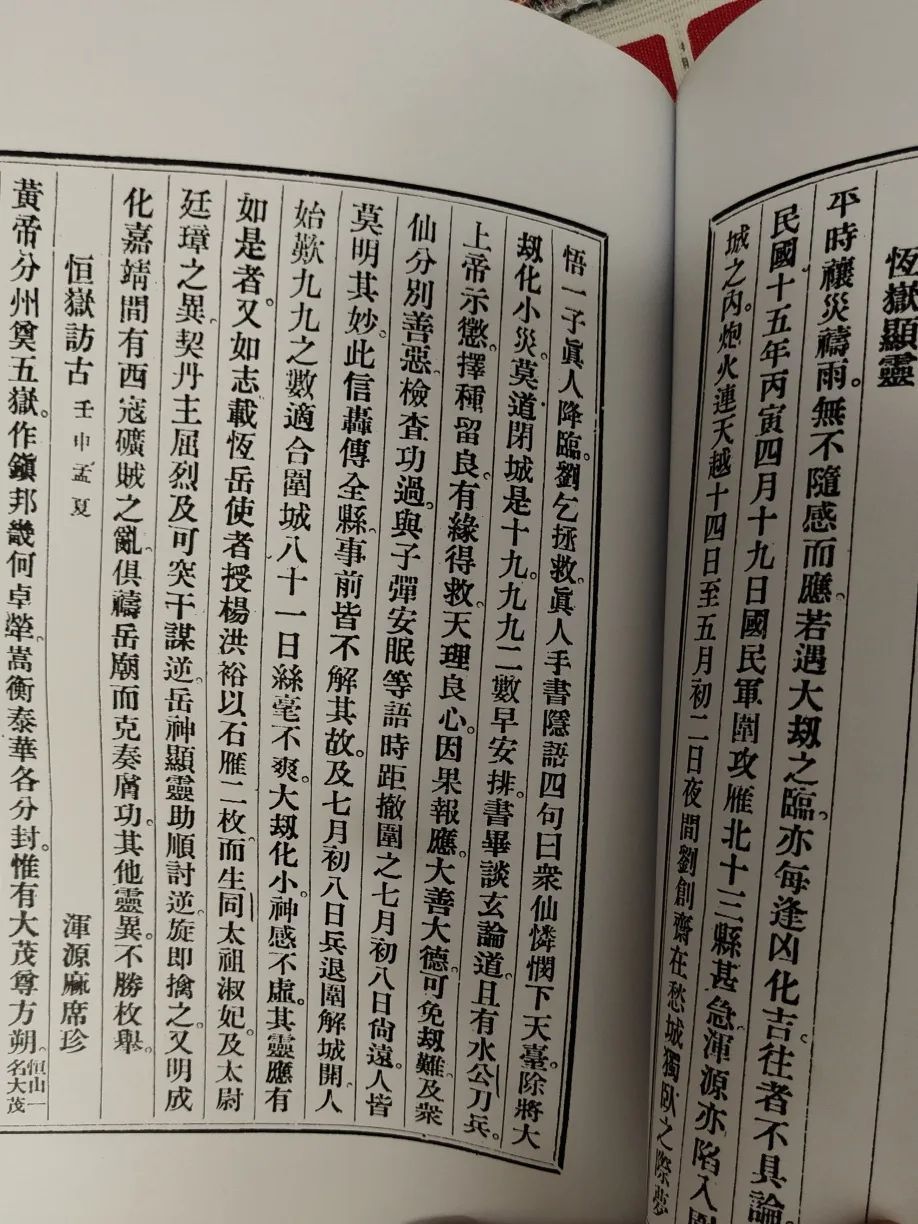 恆嶽顯靈
平時禳災禱雨。無不隨感而應。若遇大刼之臨。亦每逢凶化吉。往者不具論。
民國十五年丙寅四月十九日國民軍圍攻雁北十三縣甚急。渾源亦陷入圍
城之內。炮火連天越十四日至五月初二日夜間劉創齋在愁城獨臥之際夢
悟一子眞人降臨。劉乞拯救。眞人手書隱語四句曰衆仙憐憫下天臺。除將大
刼化小災。莫道閉城是十九。九九二數早安排。書畢談玄論道。且有水公刀兵。
上帝示懲。擇種留良。有緣得救。天理良心。因果報應。大善大德。可免刼難。及衆
仙分別善惡。檢查功過。與子彈安眠等語時距撤圍之七月初八日尙遠。人皆
莫明其妙。此信轟傳全縣。事前皆不解其故。及七月初八日兵退圍解城開。人
始歎九九之數適合圍城八十一日絲毫不爽。大刼化小。神感不虛。其靈應有
如是者。又如志載恆岳使者授楊洪裕以石雁二枚。而生同太祖淑妃。及太尉
廷璋之異。契丹主屈烈及可突干謀逆。岳神顯靈助順討逆。旋即擒之。又明成
化嘉靖間有西寇礦賊之亂。俱禱岳廟而克奏膚功。其他靈異。不勝枚舉。
恒嶽訪古 壬申孟夏 渾源麻席珍
黃帝分州奠五嶽。作鎭邦畿何卓犖。嵩衡泰華各分封。惟有大茂尊方朔。恒山一名大茂